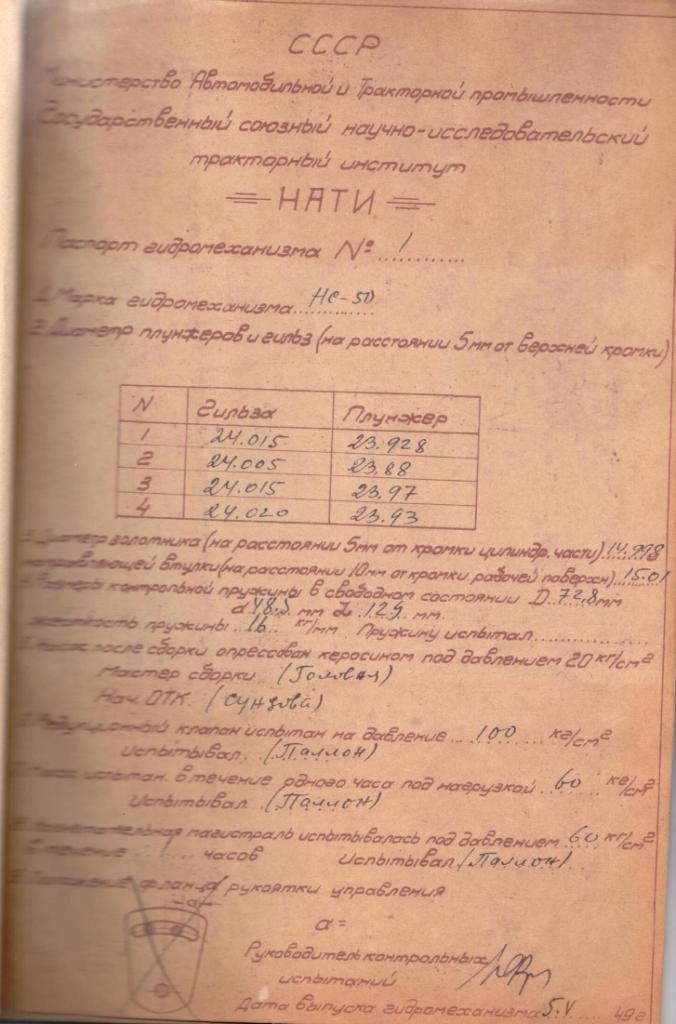 СССР
Министерство Автомобильной и Тракторной промышленности
Государственный союзный научно-исследовательский
тракторный институт
НАТИ
Паспорт гидромеханизма № 1
1. Марка гидромеханизма НС-50
2. Диаметр плунжеров и гильз (на расстоянии 5мм от верхней кромки)
N Гильза Плунжер
1 24.015 23.928
2 24.005 23.88
3 24.015 23.97
4 24.020 23.93
3. Диаметр золотника (на расстоянии 5мм от кромки цилиндр. части) 14.998
направляющей втулки (на расстоянии 10мм от кромки рабочей поверхн) 15.01
4. Размеры контрольной пружины в свободном состоянии D 72,8 мм
d 48.5 мм L 129 мм.
жесткость пружины 16 кг/мм Пружину испытал
5. Насос после сборки опрессован керосином под давлением 20 кг/см²
Мастер сборки (Головая)
Нач. ОТК. (Сунзова)
6. Редукционный клапан испытан на давление 100 кг/см²
Испытывал (Паллон)
7. Насос испытан в течение одного часа под нагрузкой 60 кг/см²
Испытывал (Паллон)
8. магистраль испытывалась под давлением 60 кг/см²
в течение 1 часов Испытывал (Паллон)
9. Положение фланца рукоятки управления
а
α =
Руководитель контрольных
испытаний
Дата выпуска гидромеханизма 5.V 49 г